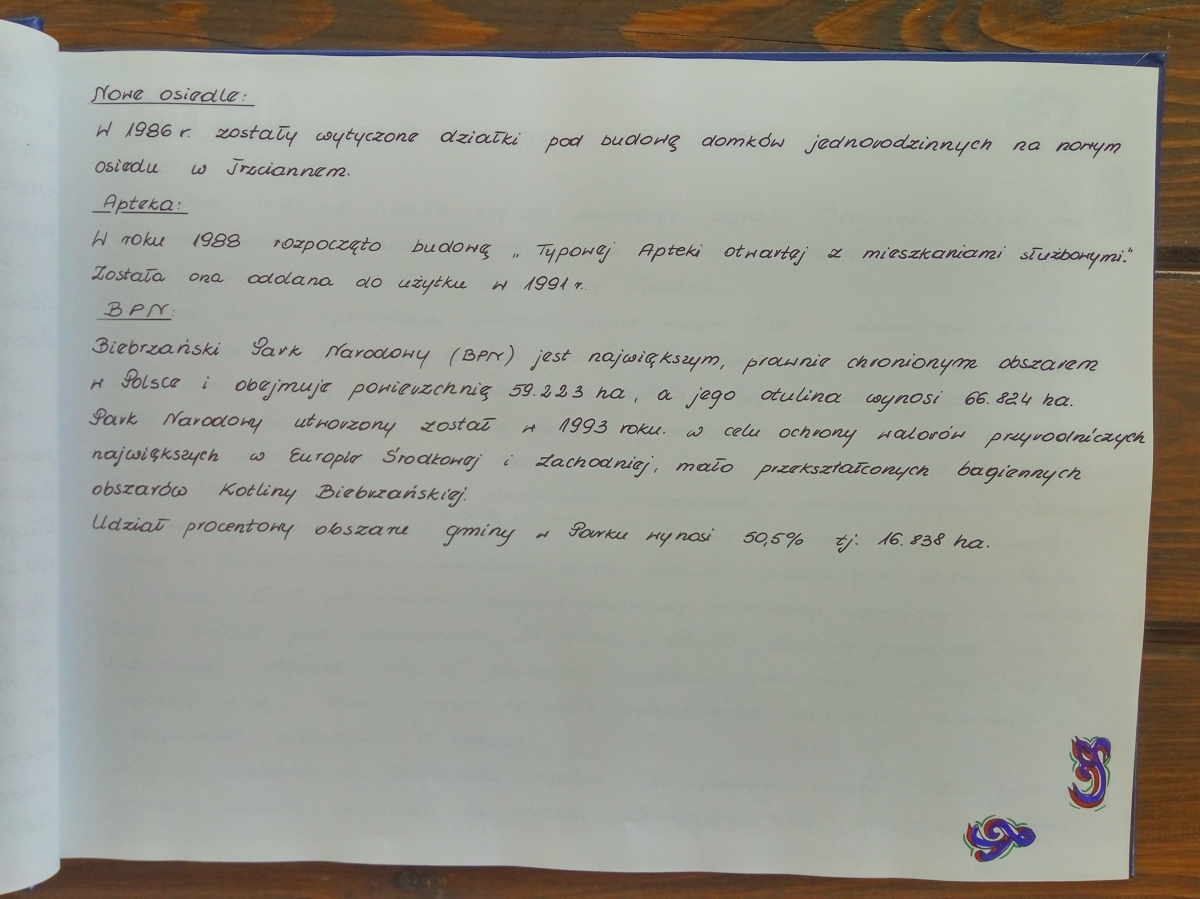 Nowe osiedle:
W 1986 r. zostały wytyczone działki pod budowę domków jednorodzinnych na nowym
osiedu w Trzciannem.
Apteka:
W roku 1988 rozpoczęto budowę „Typowej Apteki otwartej z mieszkaniami służbowymi."
Została ona oddana do użytku w 1991 r.
BPN:
Biebrzański Park Narodowy (BPN) jest największym, prawnie chronionym obszarem
w Polsce i obejmuje powierzchnię 59.223 ha, a jego otulina wynosi 66.824 ha.
Park Narodowy utworzony został w 1993 roku. w celu ochrony walorów przyrodniczych
największych w Europie Środkowej i Zachodniej, mało przekształconych bagiennych
obszarów Kotliny Biebrzańskiej.
Udział procentowy obszaru gminy w Parku wynosi 50,5% tj. 16.838 ha.